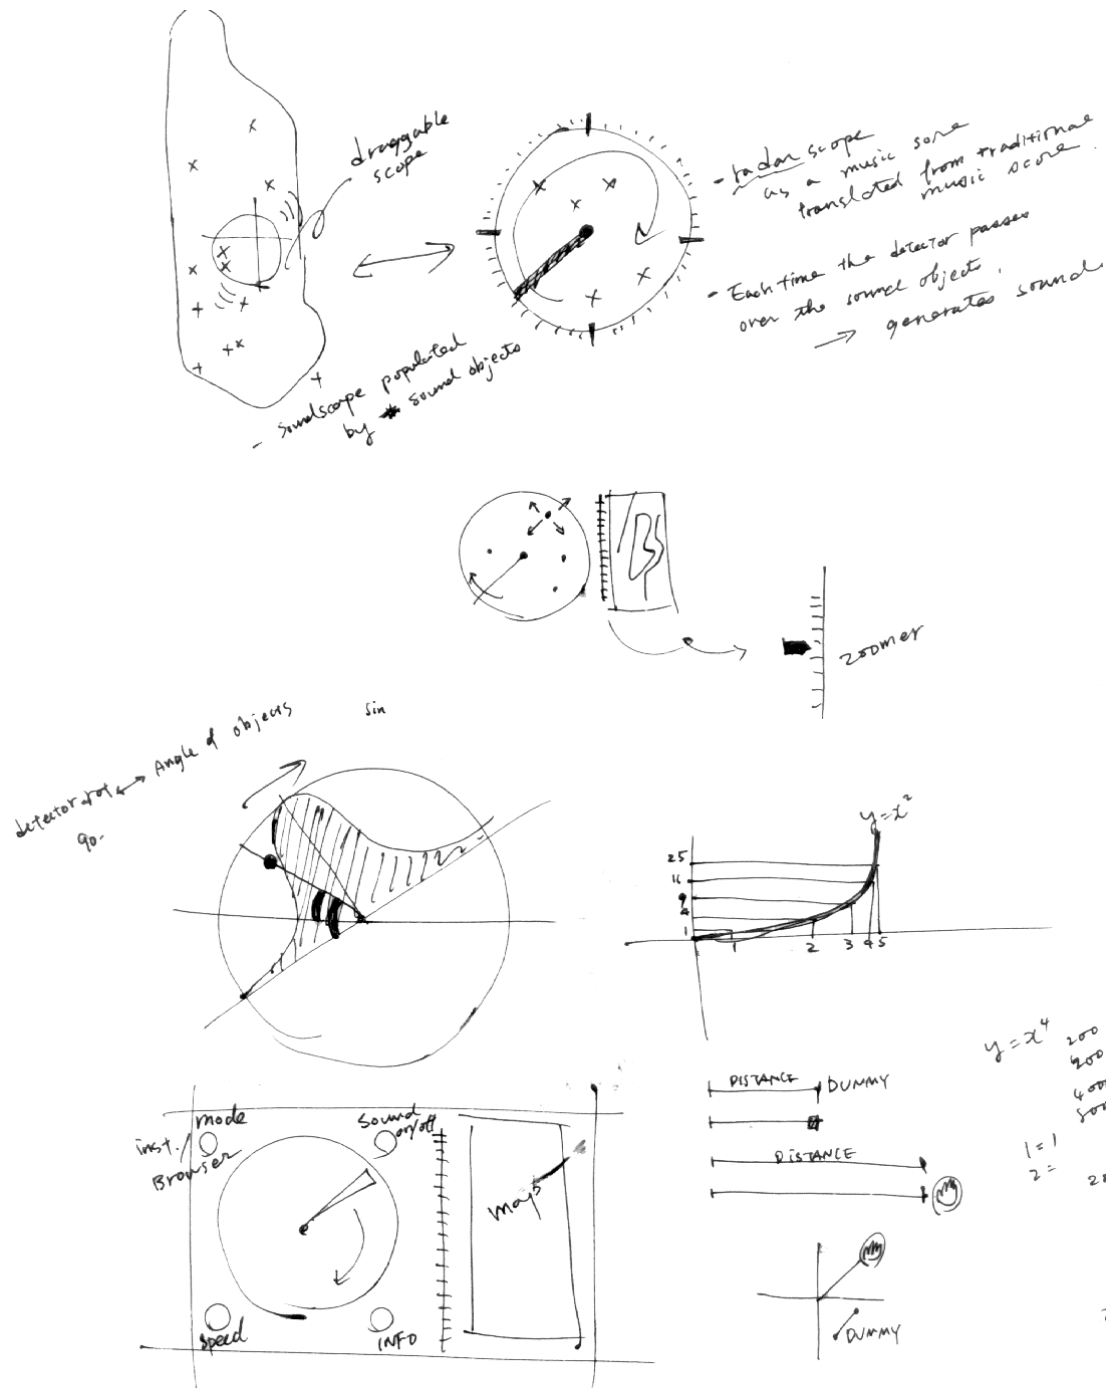 draggable
scope
- radar scope
as a music sore
translated from traditional
music score.
- Each time the detector passes
over the sound objects,
→ generates sound
- Soundscape populated
by sound objects
zoomer
detector rot ↔ Angle of objects
90-
sin
y=x²
25
16
9
4
1
1 2 3 4 5
y=x⁴
200
400
1=1
2=
DISTANCE DUMMY
DISTANCE
DUMMY
mode
inst./
Browser
Sound
on/off
map
speed
INFO